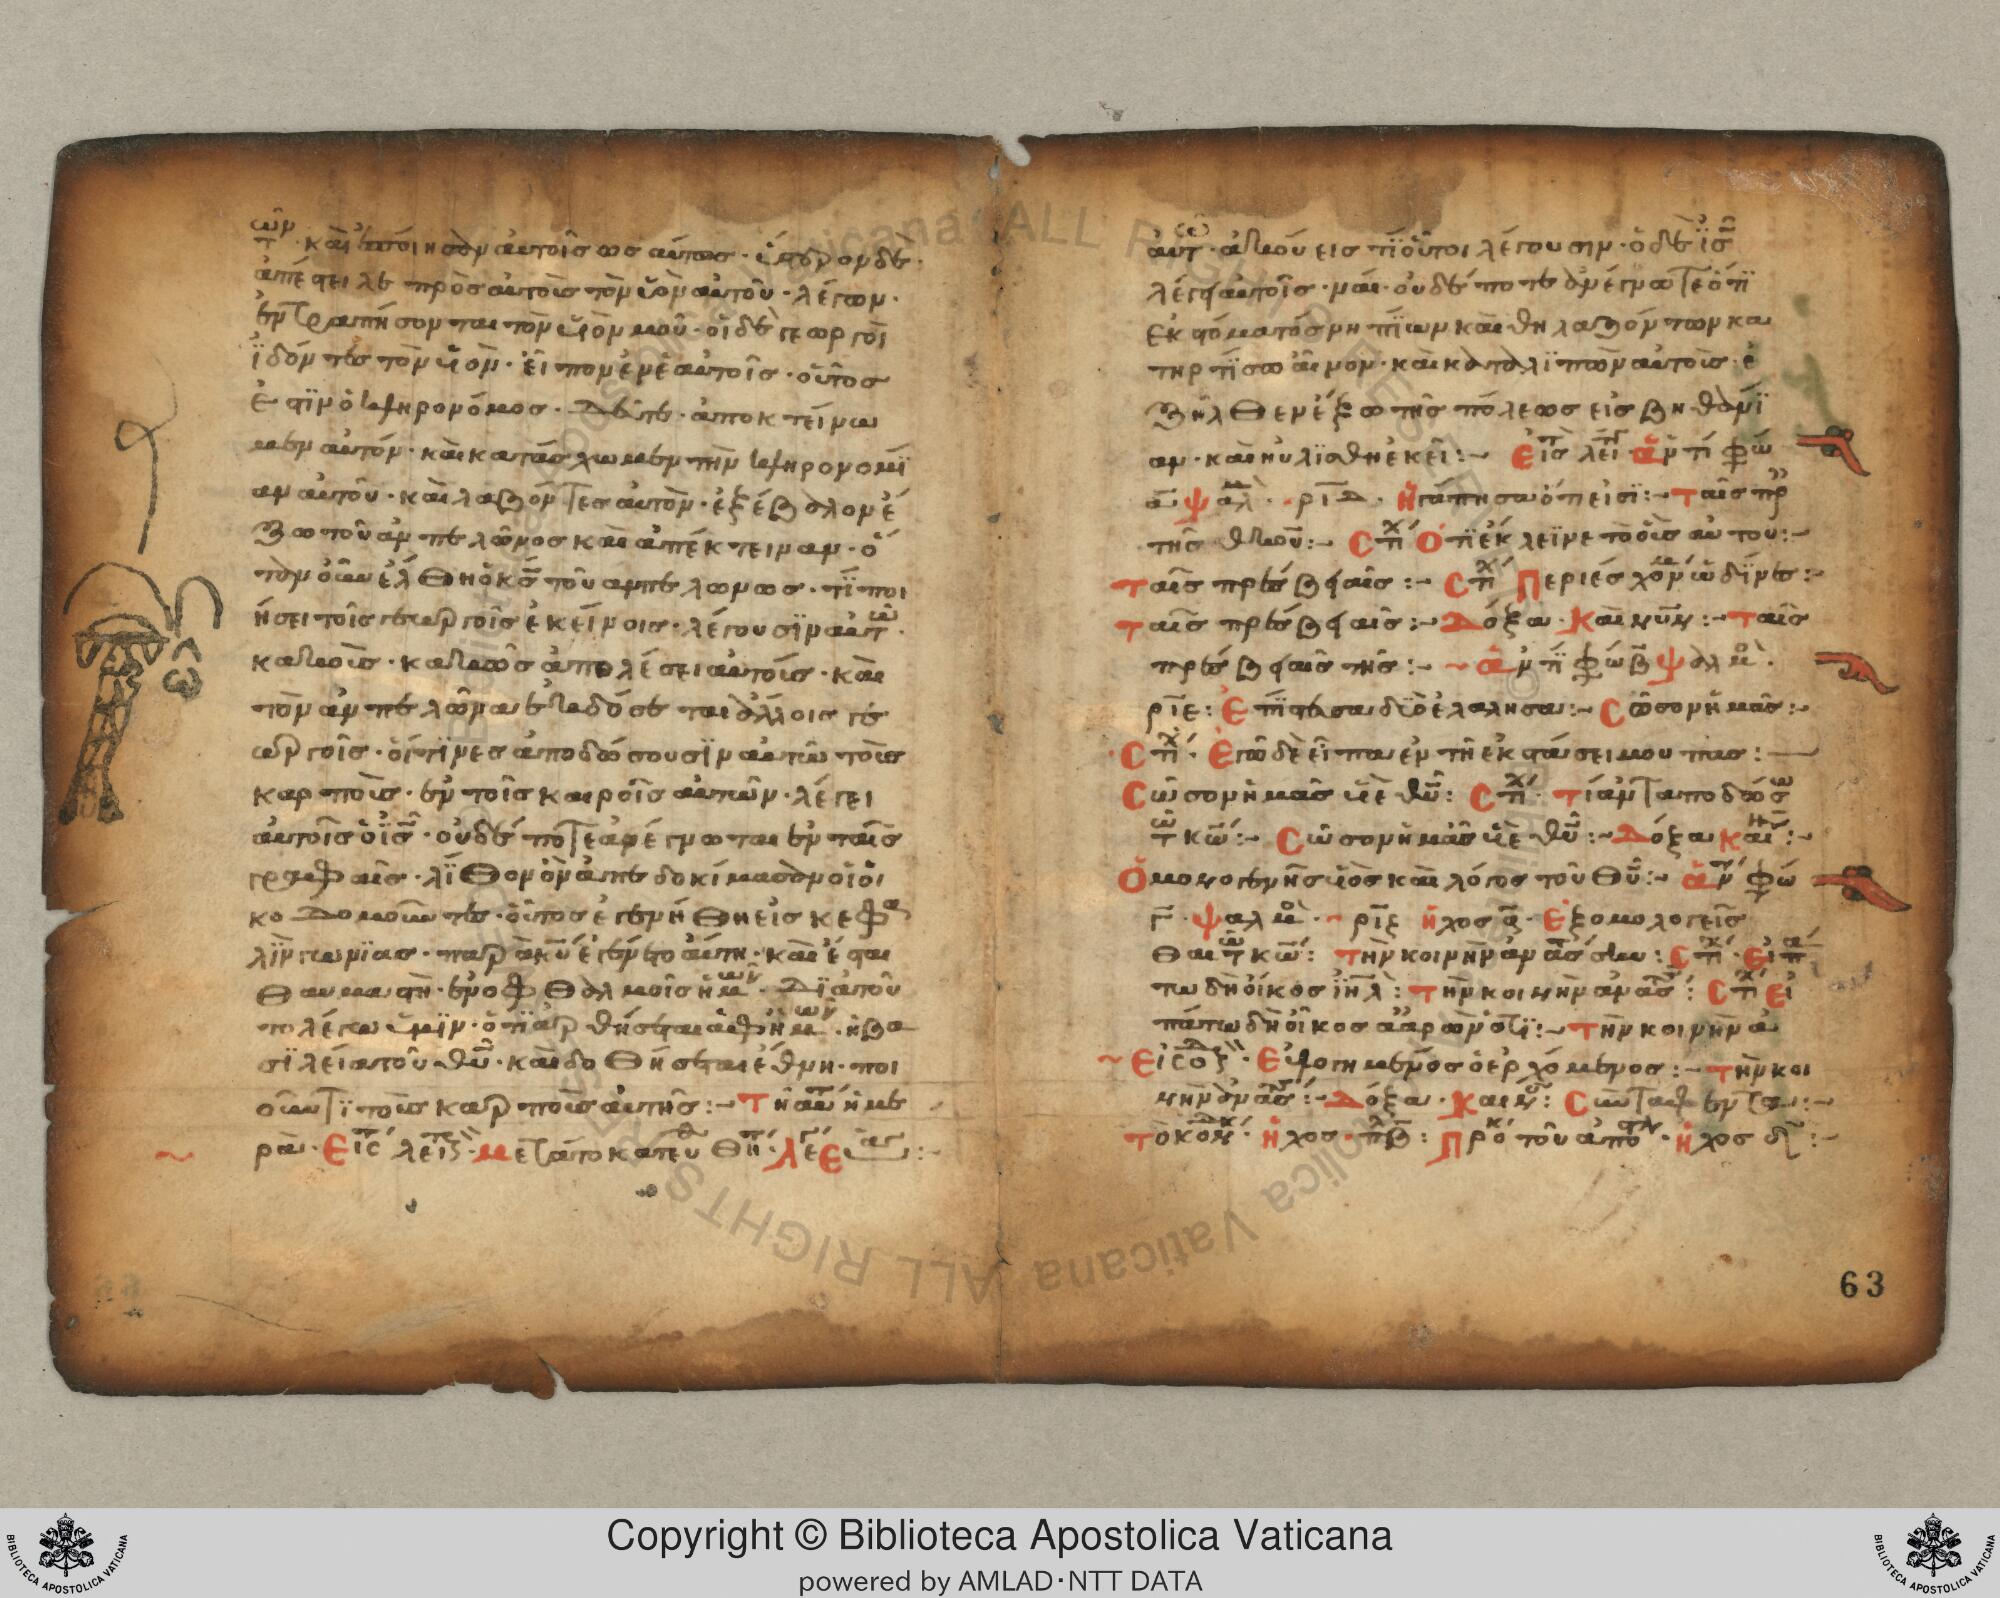 τῶν· καὶ ἐποίησαν αὐτοῖς ὡσαύτως· ὕστερον δὲ·
ἀπέστειλε πρὸς αὐτοὺς τὸν υἱὸν αὐτοῦ· λέγων·
ἐντραπήσονται τὸν υἱόν μου· οἱ δὲ γεωργοὶ
ἰδόντες τὸν υἱὸν· εἶπον ἐν ἑαυτοῖς· οὗτος
ἐστὶν ὁ κληρονόμος· δεῦτε· ἀποκτείνω
μεν αὐτόν· καὶ κατάσχωμεν τὴν κληρονομί
αν αὐτοῦ· καὶ λαβόντες αὐτὸν· ἐξέβαλον ἔ
ξω τοῦ ἀμπελῶνος καὶ ἀπέκτειναν· ὅ
ταν οὖν ἔλθη ὁ κ̅ς̅ τοῦ αμπελωνος· τί ποι
ήσει τοῖς γεωργοῖς ἐκείνοις· λέγουσϊν αὐτῶ·
κακοὺς· κακῶς ἀπολέσει αὐτούς· καὶ
τὸν αμπελῶνα ἐκδόσεται ἄλλοις γε
ωργοῖς· οἵτινες ἀποδώσουσϊν αὐτῶ τοὺς
καρποὺς· ἐν τοῖς καιροῖς αὐτῶν· λέγει
αὐτοῖς ὁ ι̅ς̅· οὐδέποτε ἀνέγνωται ἐν ταῖς
γραφαῖς· λίθον ὃν ἀπεδοκίμασαν οἱ οἰ
κοδομοῦντες· οὗτος ἐγενήθη εἰς κεφα
λὴν γωνίας· παρὰ κ̅υ̅ ἐγένετο αὕτη· καὶ ἔσται
θαυμαστὴ· ἐν οφθαλμοῖς ἡμῶν· Διὰ τοῦ
το λέγω ὑμῖν· ὅτι ἀρθήσεται ἀφ ἡμων· ἡ βα
σϊλεία τοῦ θ̅υ̅· καὶ δοθήσεται ἔθνη· ποι
οῦντϊ τοὺς καρποὺς αὐτῆς:- Τῆ αυτ ἡμέ
ρα· Εις λειτ· μετα το κατευθ· λέγε
αὐτῶ· ἀκούεις τί οὗτοι λέγουσιν· ὁ δὲ ι̅ς̅
λέγει αὐτοῖς· ναί· οὐδέποτε ἀνέγνωτε ὅτι
ἐκ στόματος νηπίων καὶ θηλαζόντων κα
τηρτίσω αἶνον· καὶ καταλιπὼν αὐτοὺς· ἐ
ξῆλθεν ἔξω τῆς πόλεως εἰς βηθανΐ
αν· καὶ ηὐλίσθη ἐκεῖ:- Εἰς λει ἀντί φώ
α̅ ψαλ ρ̅ι̅δ̅· Ἠγάπησα ὅτι εἰσϊ:- Ταῖς πρ
τῆς θκου:- Στι Ὅτι ἔκλεϊνε τὸ οὖς αὐτοῦ:-
Ταῖς πρέσβείαις:- Στι Περιέσχον ὠδῖνες:-
Ταῖς πρέσβείαις:- Δόξα· Καὶ νῦν:- Ταῖς
πρέσβείαις τῆς:- ἀντί φώ β̅ ψαλμ·
ρ̅ι̅ε̅: Ἐπίστευσα διὸ ἐλάλησα:- Σῶσον ἡμᾶς:-
Στι· Ἐγὼ δὲ εἶπα ἐν τῆ ἐκστάσει μου πας:-
Σῶσον ἡμᾶς υἱὲ θ̅υ̅: Στι· τί ἀνταποδώσω
τῶ κ̅ω̅:- Σῶσον ἡμᾶς υἱὲ θ̅υ̅:- Δόξα και:-
Ὁ μονογενὴς υἱὸς καὶ λόγος τοῦ θ̅υ̅:- ἀντ φώ
γ̅· ψαλμ· ρ̅ι̅ζ̅ ἦχος α̅· Ἐξομολογεῖσ
θαι τῶ κ̅ω̅: τὴν κοινὴν ἀνάστασιν: Στι· Εἰπά
τω δὴ οἶκος ι̅η̅λ̅: τὴν κοινὴν ἀνασ: Στι εἰ
πάτω δὴ οἶκος ἀαρὼν ὅτϊ:- Τὴν κοινὴν ἀ
Εἰσοδ· Εὐλογημένος ὁ ερχόμενος:- τὴν κοι
νὴν ἀνασ:- Δόξα· Και ν: Συνταφεντα:-
τὸ κον· ἦχος· π̅λ̅ β̅: Προκ τοῦ αποστλ· ἦχος δ̅:-
63
Copyright © Biblioteca Apostolica Vaticana
powered by AMLAD·NTT DATA